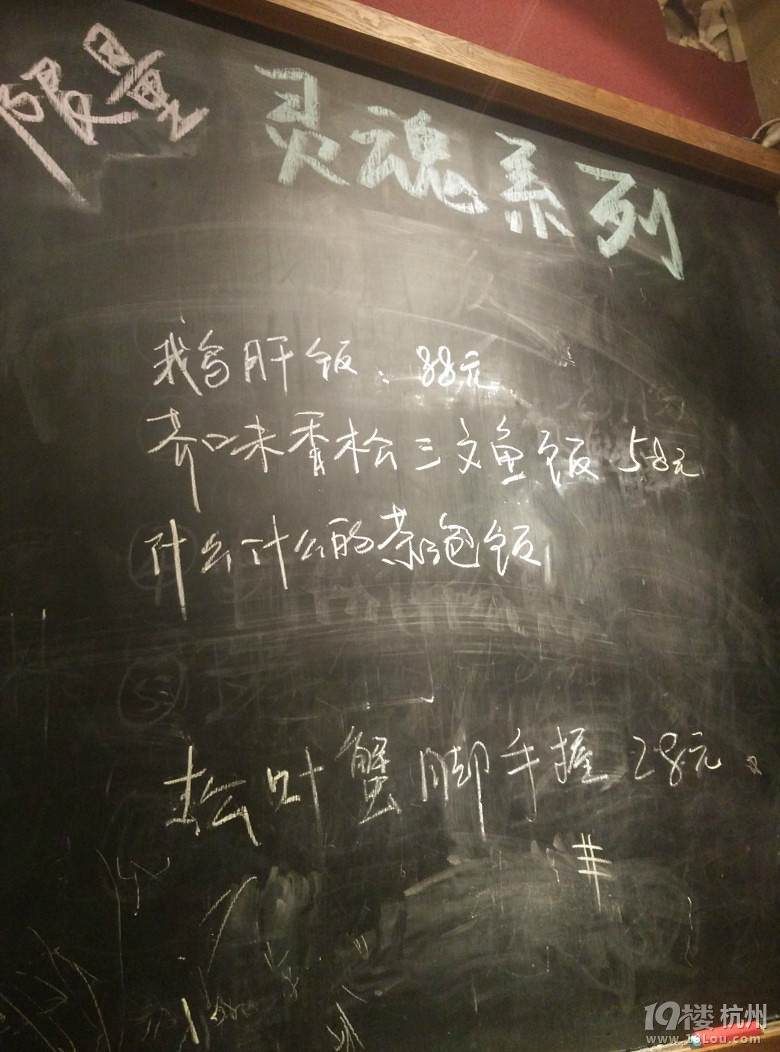 限量 灵魂系列
鹅肝饭：88元
芥味香松三文鱼饭 58元
什么什么的茶泡饭
松叶蟹脚手握 28元
19楼 杭州
www.19lou.com